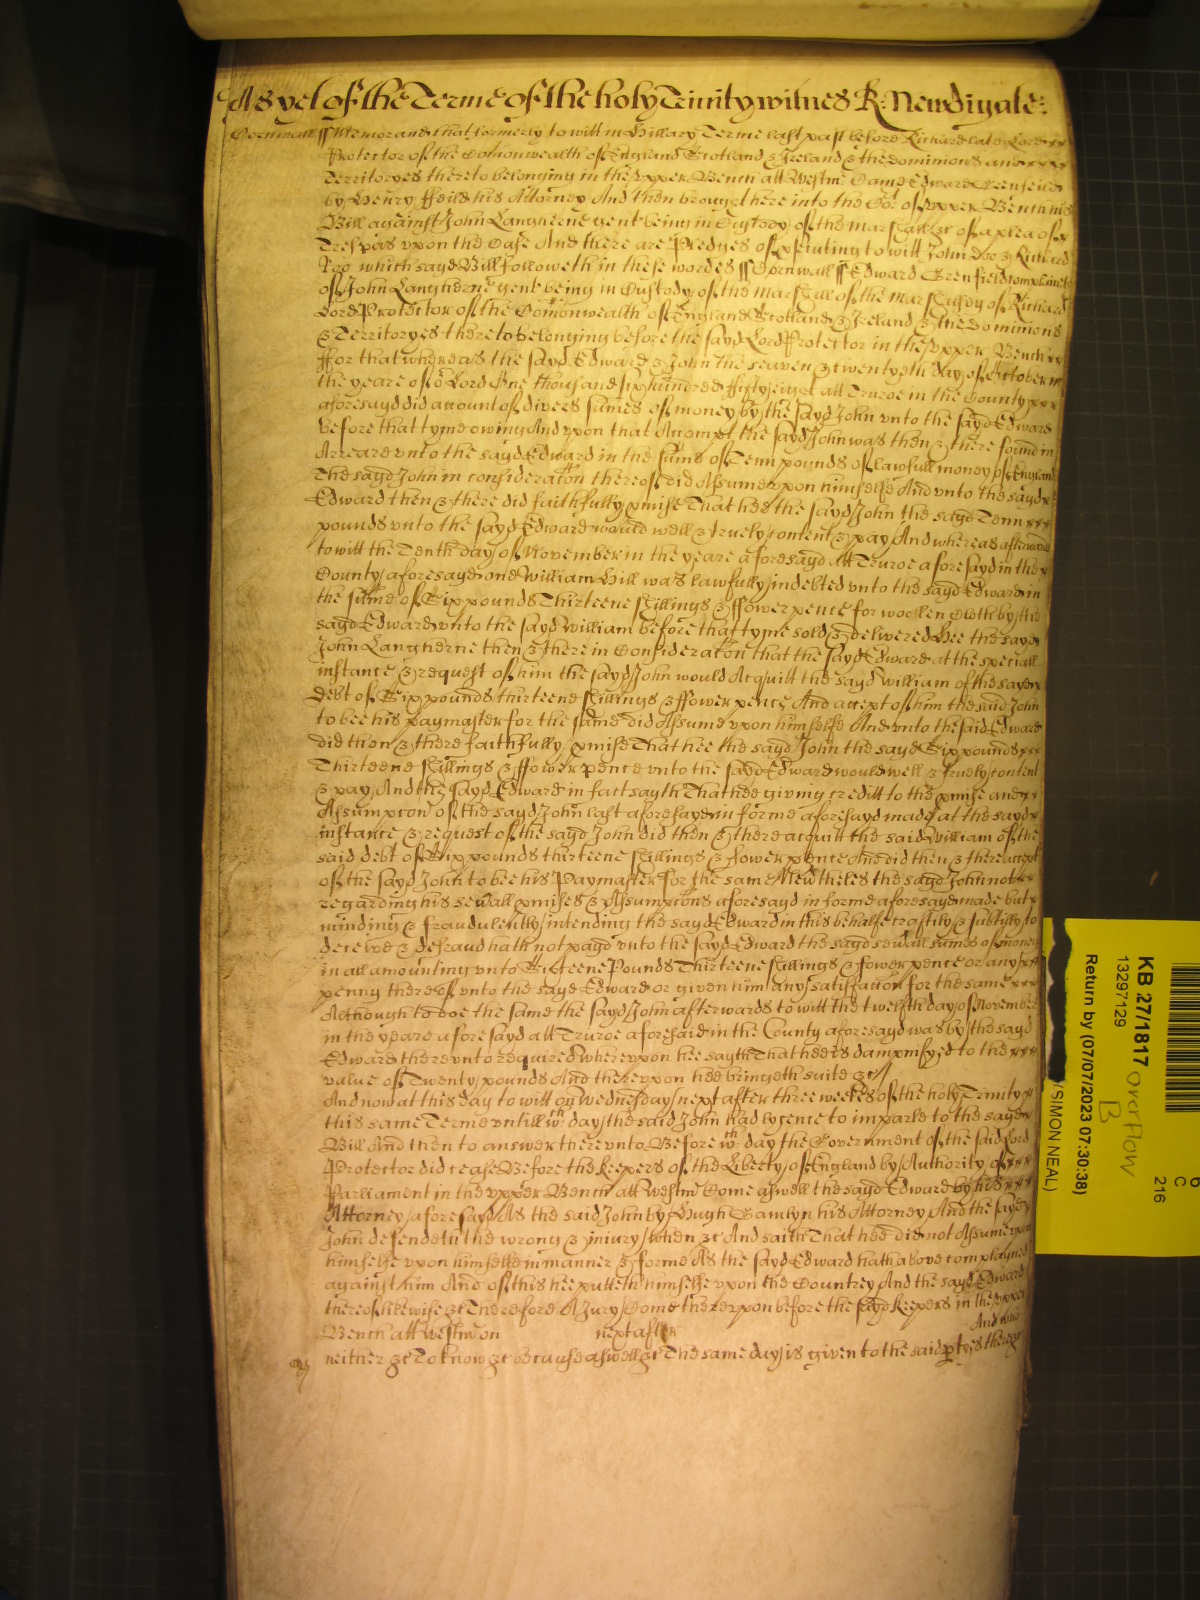 As yet of the Terme of the holy Trinity witnes R: Newdigate:
Cornwall ss Memorand that formerly to witt in Hillary Terme last past before Richard late Lord
Protector of the Comonwealth of England Scotland & Ireland & the dominions and
Territoryes thereto belonging in the upper Bench att Westmr Came Edward Grenfeild
by Henry ffeild his Attorney And then brought here into the Cot of upper Bench his
Bill against John Langherne gent being in Custody of the Marshall &c of a plea of
Trespas upon the Case And there are Pledges of psecuting to witt John Doo & Richard
Roo which sayd Bill followeth in these wordes ss Cornwall ss Edward Grenfield complaines
of John Langherne gent being in Custody of the Marshall of the Marshalsey of Richard
Lord Protector of the Comonwealth of England Scotland & Ireland & the Dominions
& Territoryes thereto belonging before the sayd Lord Protector in the upper Bench
ffor that whereas the sayd Edward & John the seaven & twentyth day of October in
the yeare of or Lord One thousand six hundred ffifty eight att Truroe in the County
aforesayd did account of divers sumes of money by the sayd John unto the sayd Edward
before that tyme owing And upon that Accompt the sayd John was then & there found in
Arreare unto the sayd Edward in the sume of Tenn pounds of lawfull money of England
The sayd John in consideracon thereof did Assume upon himselfe And unto the sayd
Edward then & there did faithfully pmise That hee the sayd John the sayd Tenn
pounds unto the sayd Edward would well & truely content & pay And whereas afterwards
to witt the Tenth day of November in the yeare aforesayd Att Truroe aforesayd in the
County aforesayd one William Hill was lawfully indebted unto the sayd Edward in
the sume of Six pounds Thirteene shillings & ffower pence for woollen Cloth by the
sayd Edward unto the sayd William before that tyme sold & delivered Hee the sayd
John Langherne then & there in Consideracon that the sayd Edward at the speciall
instance & request of him the sayd John would Acquitt the sayd William of the sayd
debt of Six pounds thirteene shillings & ffower pence And accept of him the said John
to bee his paymaster for the same did Assume upon himselfe And unto the said Edward
did then & there faithfully pmise That hee the sayd John the sayd Six pounds
Thirteene shillings & ffower pence unto the sayd Edward would well & truely content
& pay And the sayd Edward in fact sayth That hee giving creditt to the pmise and
Assumpcon of the sayd John last aforesayd in forme aforesayd made at the sayd
instance & request of the sayd John did then & there acquitt the said William of the
said debt of Six pounds thirteene shillings & fower pence And did then & there accept
of the sayd John to bee his Paymaster for the same Nevtheles the sayd John not
regarding his sevall pmises & Assumpcons aforesayd in forme aforesayd made but
minding & fraudulently intending the sayd Edward in this behalfe craftily & subtilly to
deceive & defraud hath not payd unto the sayd Edward the sayd sevall sumes of money
in all amounting unto Sixteene Pounds Thirteene shillings & fower pence or any
penny thereof unto the sayd Edward or given him any satisfaccon for the same
Although to doe the same the sayd John afterwards to witt the twelfth day of November
in the yeare aforesayd att Truroe aforesaid in the County aforesayd was by the sayd
Edward thereunto required whereupon hee sayth That hee is dampnifyed to the
value of Twenty pounds And thereupon hee bringeth suite &c
And now at this day to witt on Wednesday next after three weekes of the holy Trinity
this same Terme untill wch day the said John had lycence to imparle to the sayd
Bill And then to answer thereunto Before wch day the Government of the said Lord
Protector did cease Before the Keepers of the Liberty of England by Authority of
Parliament in the upper Bench att Westmr Come aswell the sayd Edward by his
Attorney aforesayd As the said John by Hugh Gamlyn his Attorney And the sayd
John defendeth the wrong & injury when &c And saith That hee did not Assume upon
himselfe upon himselfe in manner & forme As the sayd Edward hath above complayned
against him And of this hee putteth himselfe upon the Countrey And the sayd Edward
thereof likewise &c Therefore A Jury Come thereupon before the sayd Keepers in the upper
Bench att Westm on next after And who
neither &c To know &c because aswell &c The same day is given to the said ptyes there &c
KB 27/1817
13297129
Return by (07/07/2023 07:30:38)
(SIMON NEAL)
overflow
B
C
216